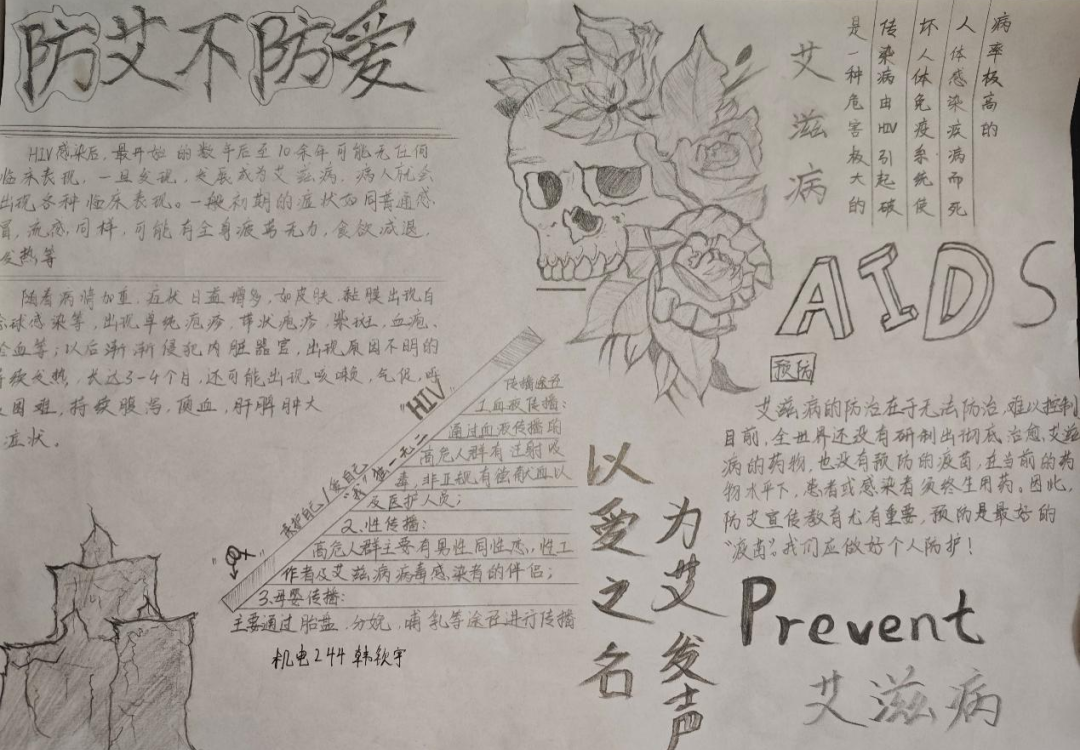 防艾不防爱
HIV感染后,最开始的数年后至10余年可能无任何
临床表现。一旦发现,发展成为艾滋病,病人就会
出现各种临床表现。一般初期的症状如同普通感
冒,流感同样,可能有全身疲劳无力,食欲减退,
发热等
随着病情加重,症状日益增多,如皮肤、黏膜出现白
球感染等,出现单纯疱疹,带状疱疹,紫斑,血疱、
血等;以后渐渐侵犯内脏器官,出现原因不明的
持续发热,长达3-4个月,还可能出现咳嗽,气促,呼
困难,持续腹泻,便血,肝脾肿大
症状。
"HIV"
自己/爱自己
"我"独一无二
传播途径
1.血液传播:
通过血液传播的
高危人群有注射吸
毒,非正规有偿献血以
及医护人员;
2.性传播:
高危人群主要有男性同性恋,性工
作者及艾滋病病毒感染者的伴侣;
3.母婴传播:
主要通过胎盘,分娩,哺乳等途径进行传播
机电244 韩钦宇
以爱之名
为艾发声
艾滋病
是一种危害极大的
传染病由HIV引起破
坏人体免疫系统使
人体感染疲病而死
病率极高的
AIDS
预防
艾滋病的防治在于无法防治,难以控制
目前,全世界还没有研制出彻底治愈艾滋
病的药物,也没有预防的疫苗,在当前的药
物水平下,患者或感染者须终生用药。因此,
防艾宣传教育尤有重要,预防是最好的
"疫苗"。我们应做好个人防护!
Prevent
艾滋病